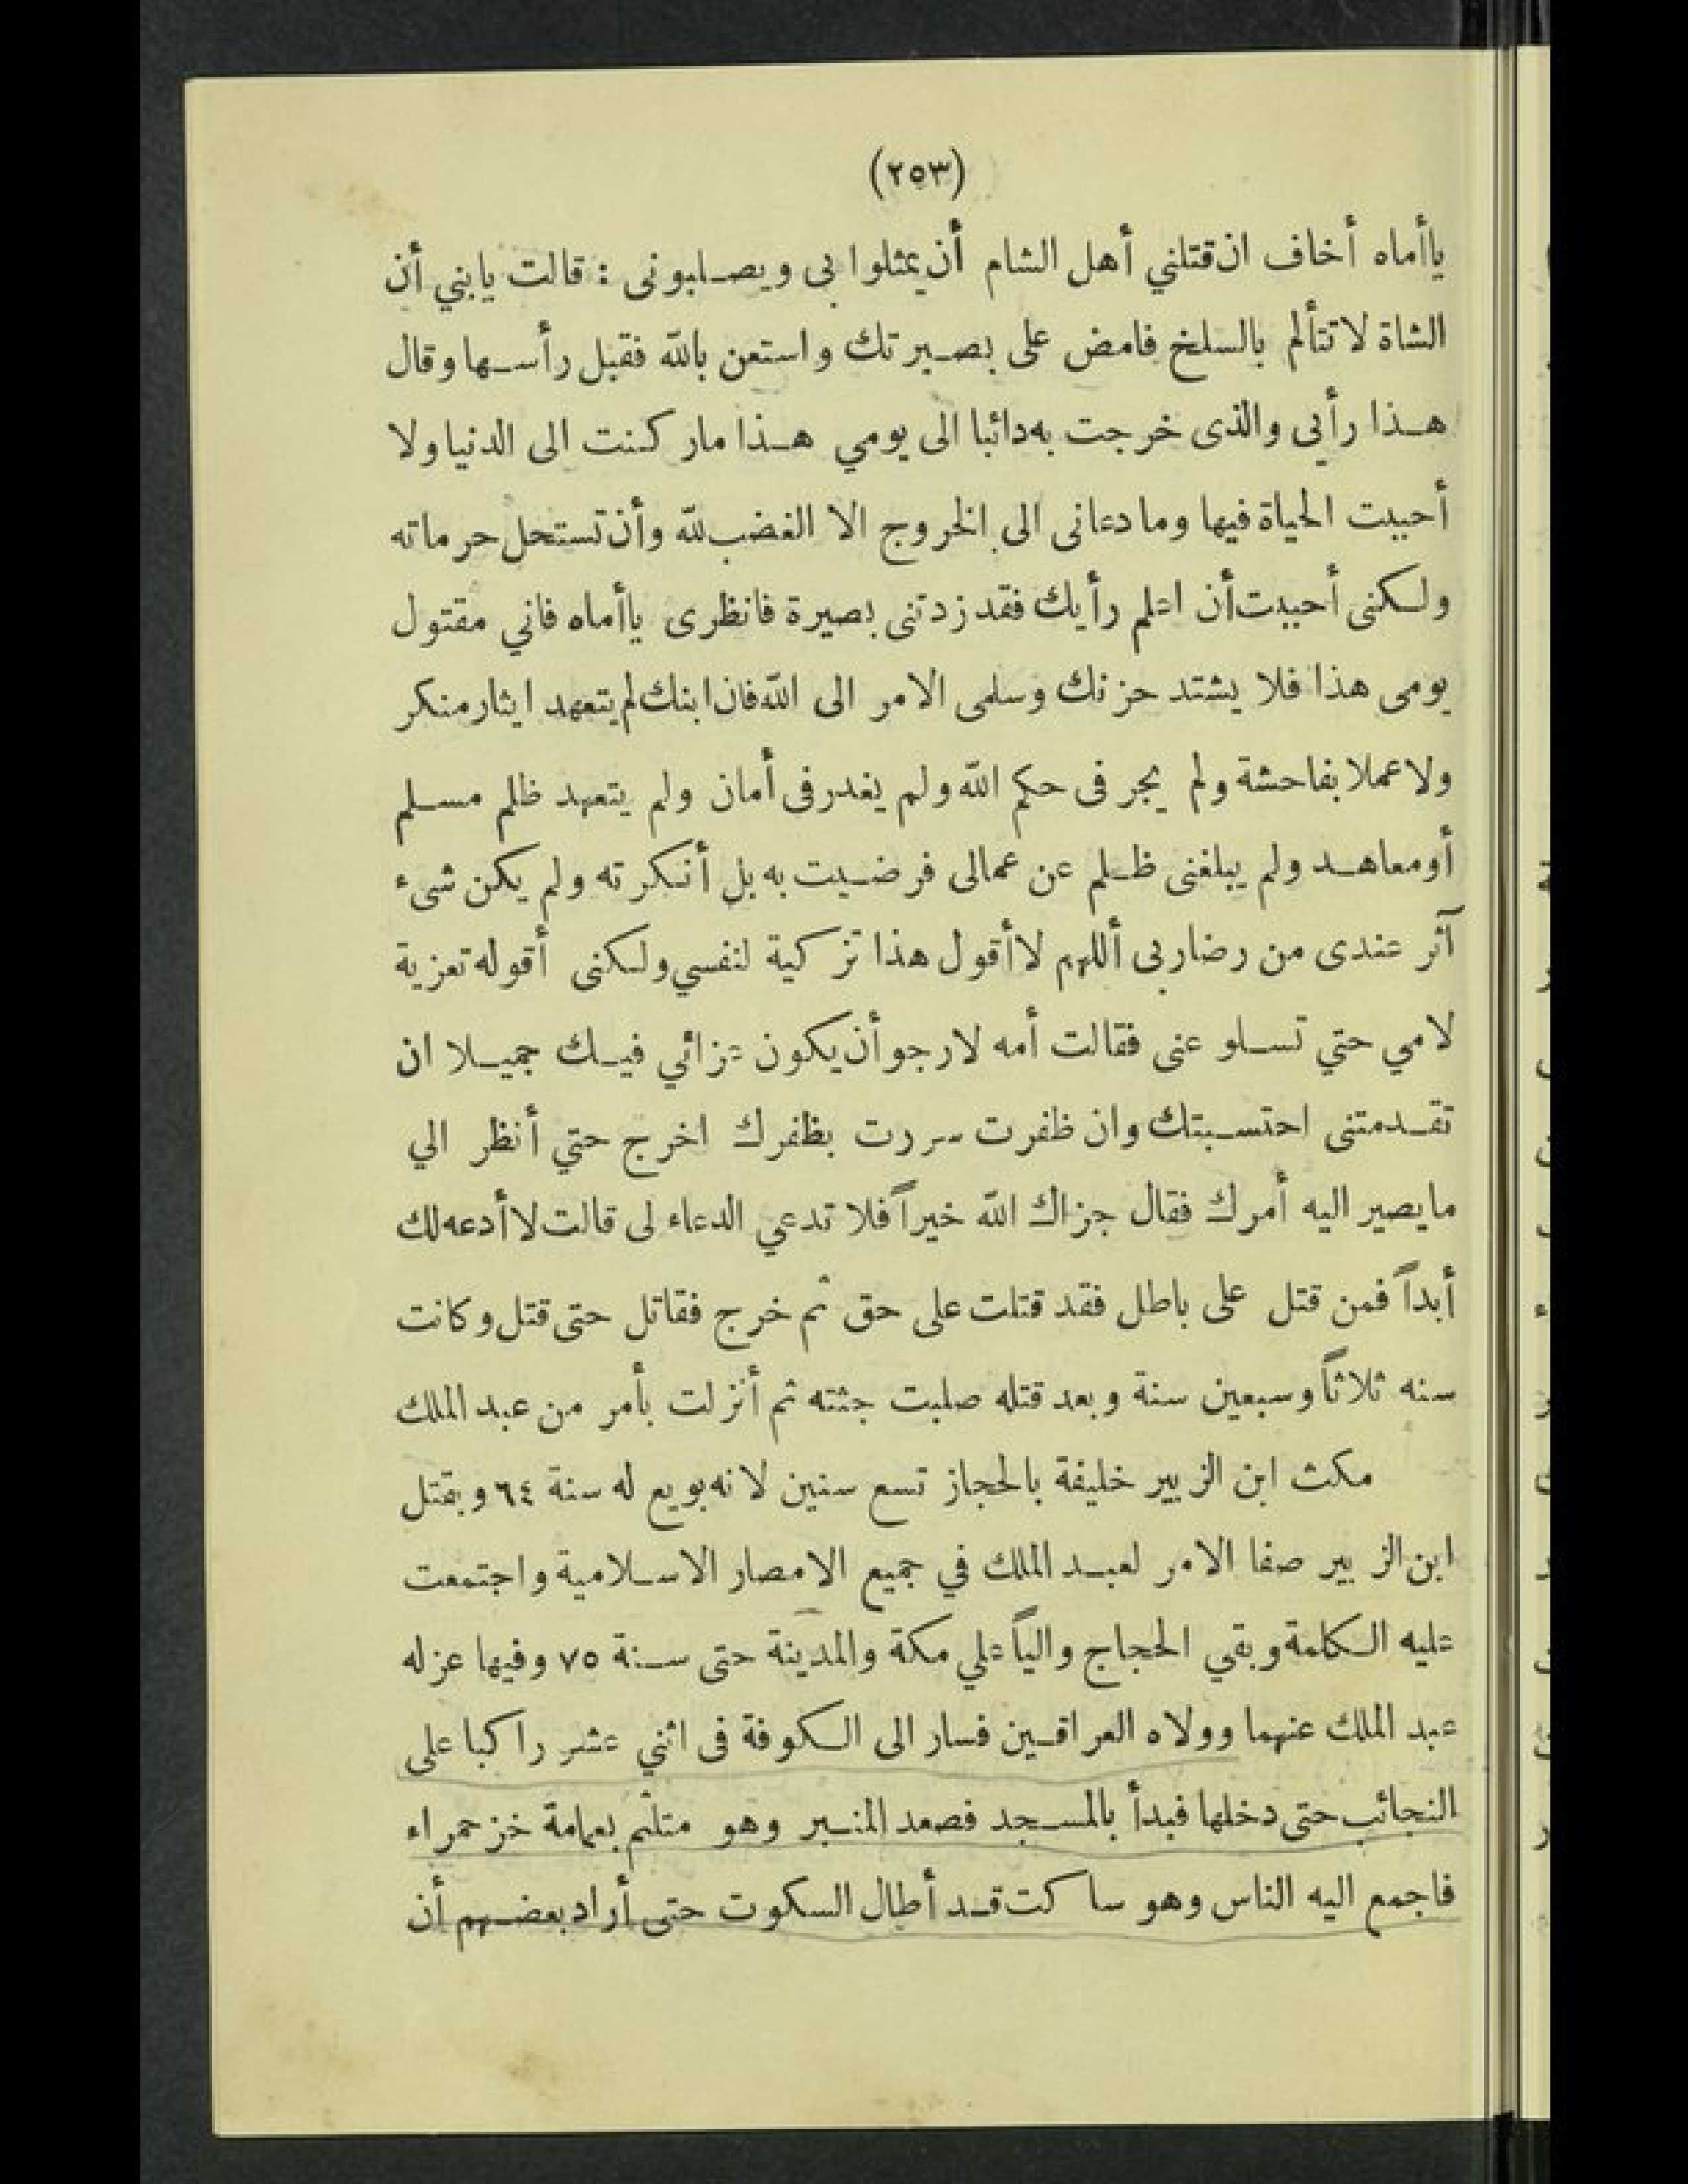 (٢٥٣)
ياأماه أخاف ان قتلني أهل الشام أن يمثلوا بى ويصلبونى : قالت يابني أن
الشاة لا تتألم بالسلخ فامض على بصيرتك واستعن بالله فقبل رأسها وقال
هذا رأيي والذى خرجت به دائبا الى يومي هذا ماركنت الى الدنيا ولا
أحببت الحياة فيها وما دعانى الى الخروج الا الغضب لله وأن تستحل حرماته
ولكنى أحببت أن اعلم رأيك فقد زدتنى بصيرة فانظرى ياأماه فاني مقتول
يومى هذا فلا يشتد حزنك وسلمى الامر الى الله فان ابنك لم يتعهد ايثار منكر
ولا عملا بفاحشة ولم يجر فى حكم الله ولم يغدر فى أمان ولم يتعهد ظلم مسلم
أو معاهد ولم يبلغنى ظلم عن عمالى فرضيت به بل أنكرته ولم يكن شىء
آثر عندى من رضا ربى أللهم لا أقول هذا تزكية لنفسي ولكنى أقوله تعزية
لامي حتي تسلو عنى فقالت أمه لارجو أن يكون عزائي فيك جميلا ان
تقدمتنى احتسبتك وان ظفرت سررت بظفرك اخرج حتي أنظر الي
مايصير اليه أمرك فقال جزاك الله خيراً فلا تدعي الدعاء لى قالت لا أدعه لك
أبداً فمن قتل على باطل فقد قتلت على حق ثم خرج فقاتل حتى قتل وكانت
سنه ثلاثاً وسبعين سنة وبعد قتله صلبت جثته ثم أنزلت بأمر من عبد الملك
مكث ابن الزبير خليفة بالحجاز تسع سنين لانه بويع له سنة ٦٤ وبقتل
ابن الزبير صفا الامر لعبد الملك في جميع الامصار الاسلامية واجتمعت
عليه الكلمة وبقي الحجاج والياً علي مكة والمدينة حتى سنة ٧٥ وفيها عزله
عبد الملك عنهما وولاه العراقين فسار الى الكوفة فى اثني عشر راكبا على
النجائب حتى دخلها فبدأ بالمسجد فصعد المنبر وهو متلثم بعمامة خز حمراء
فاجمع اليه الناس وهو ساكت قد أطال السكوت حتى أراد بعضهم أن